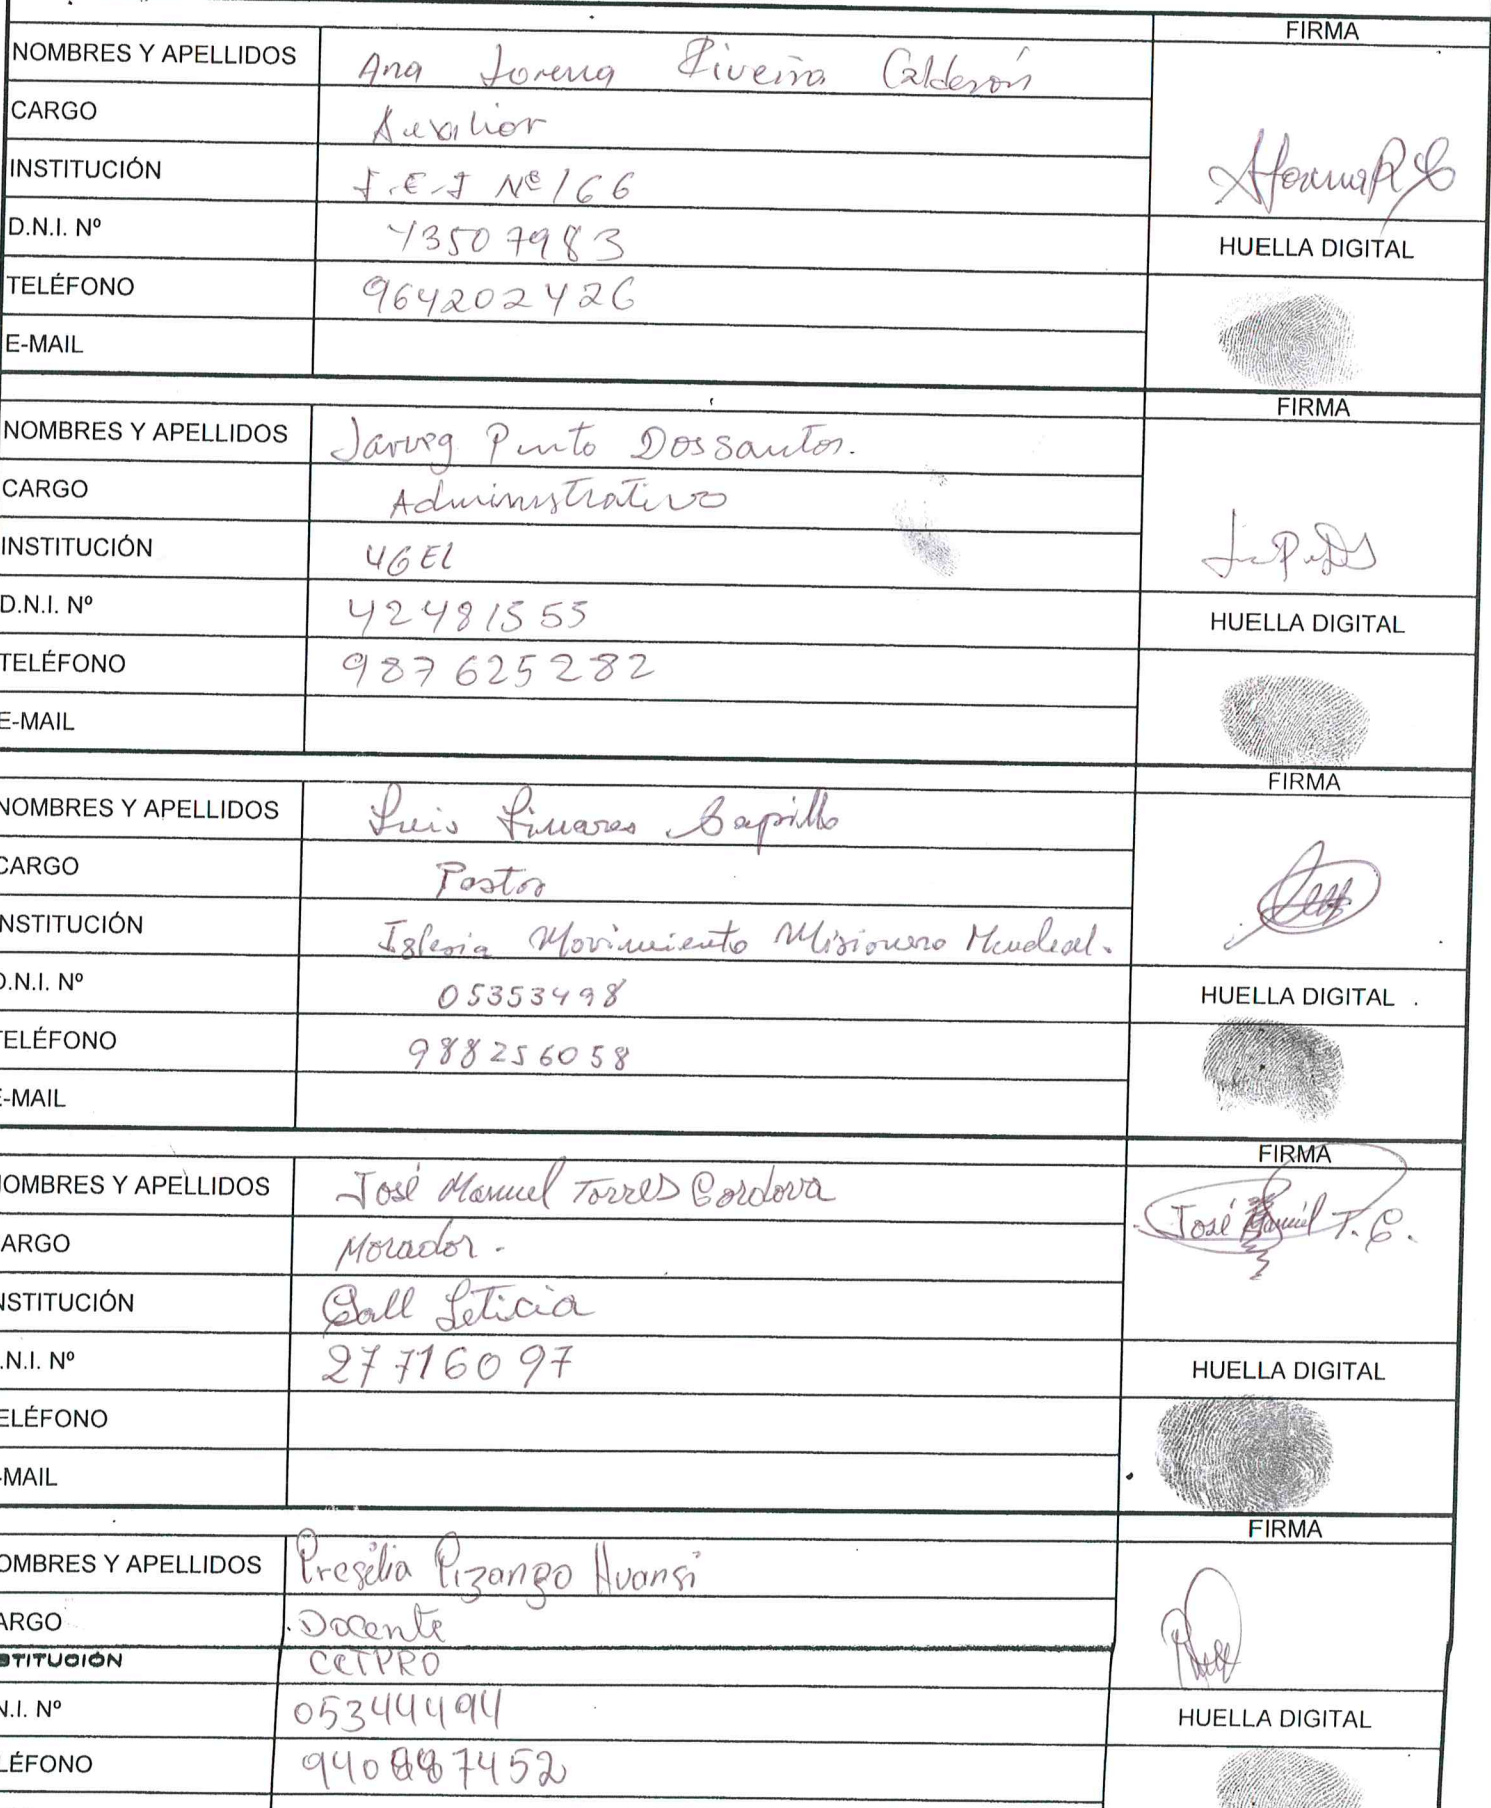 FIRMA
NOMBRES Y APELLIDOS Ana Lorena Riveira Calderón
CARGO Auxiliar
INSTITUCIÓN I.E.I Nº 166
D.N.I. Nº 43507983
HUELLA DIGITAL
TELÉFONO 964202426
E-MAIL
FIRMA
NOMBRES Y APELLIDOS Pinto Dossantos.
CARGO Administrativo
INSTITUCIÓN UGEL
D.N.I. Nº 42481555
HUELLA DIGITAL
TELÉFONO 987625282
E-MAIL
FIRMA
NOMBRES Y APELLIDOS Luis Linares
CARGO Pastor
INSTITUCIÓN Iglesia Movimiento Misionero Mundial.
D.N.I. Nº 05353498
HUELLA DIGITAL
TELÉFONO 988256058
E-MAIL
FIRMA
NOMBRES Y APELLIDOS José Manuel Torres Cordova
José Manuel T. C.
CARGO Morador.
INSTITUCIÓN Call Leticia
D.N.I. Nº 27716097
HUELLA DIGITAL
TELÉFONO
E-MAIL
FIRMA
NOMBRES Y APELLIDOS Presilia Pizango Huansi
CARGO Docente
INSTITUCIÓN CETPRO
D.N.I. Nº 05344494
HUELLA DIGITAL
TELÉFONO